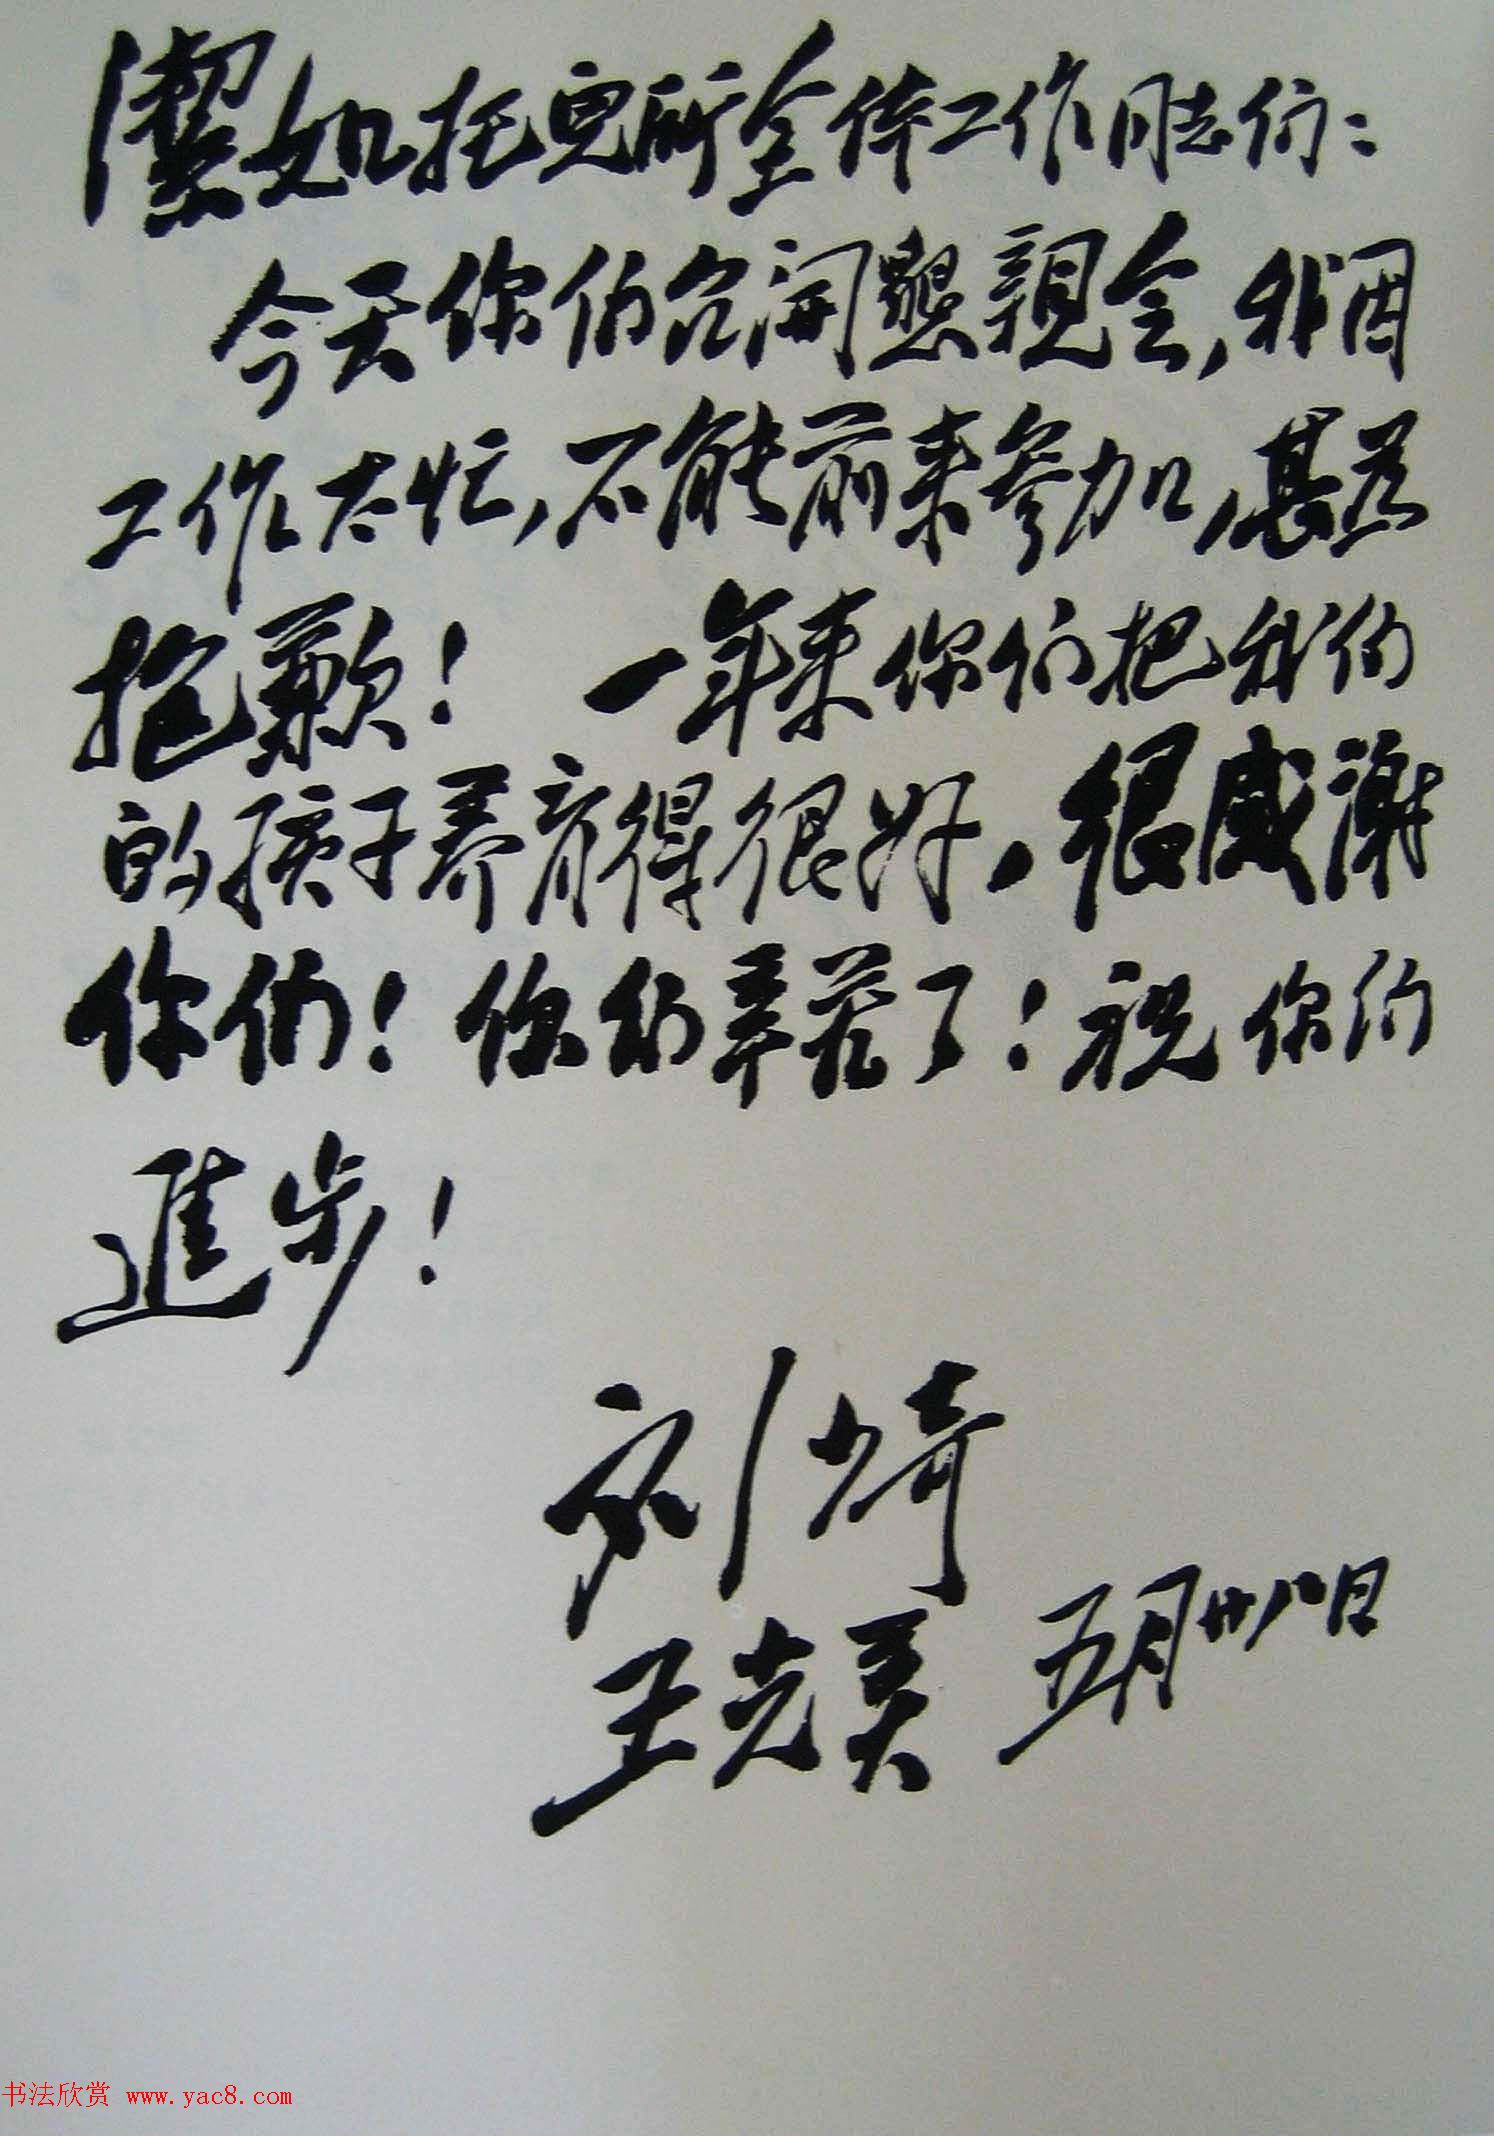 潔如托兒所全体工作同志们：
今天你们召开懇親会，我因
工作太忙，不能前来参加，甚为
抱歉！ 一年来你们把我们
的孩子养育得很好，很感謝
你们！你们辛苦了！祝你们
進步！
刘少奇
王光美 五月廿八日
书法欣赏 www.yac8.com